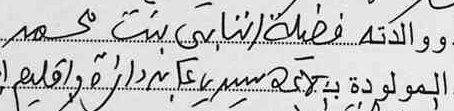 ووالدته فضيلة انتابتي بنت محمد
المولودة بـ سيدي عابد دائرة واقليم